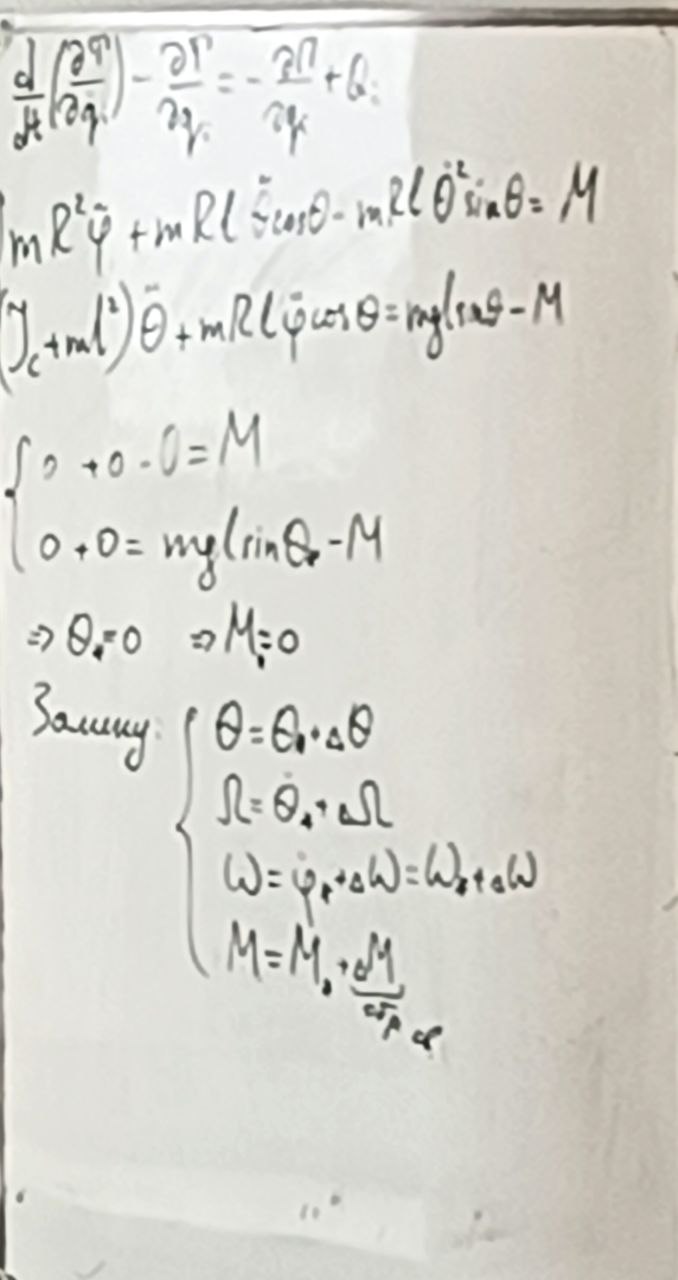 d/dt (∂T/∂q̇ᵢ) - ∂T/∂qᵢ = - ∂П/∂qᵢ + Qᵢ
mR²φ̈ + mRl θ̈ cosθ - mRl θ̇² sinθ = M
(J_c + ml²)θ̈ + mRl φ̈ cosθ = mgl sinθ - M
{ 0 + 0 - 0 = M
0 + 0 = mgl sinθ* - M
⇒ θ* = 0 ⇒ M* = 0
Замену: { θ = θ* + Δθ
Ω = θ̇* + ΔΩ
ω = φ̇* + Δω = ω* + Δω
M = M* + ΔM